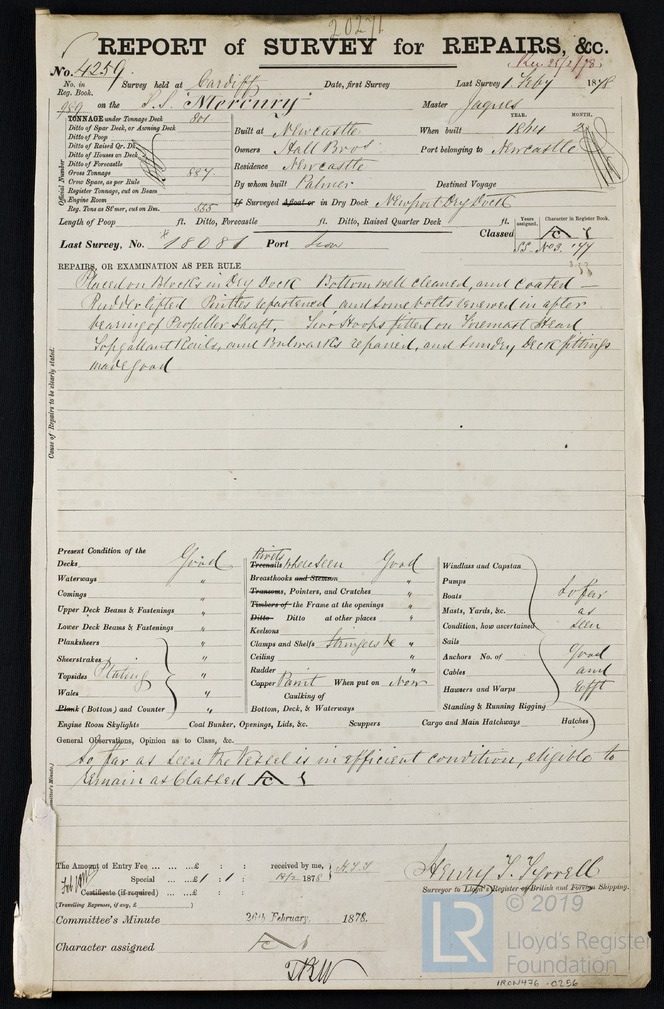 20271
REPORT of SURVEY for REPAIRS, &c.
No. 4259
No. in Reg. Book. Survey held at Cardiff Date, first Survey Last Survey 1. Feby 1878
989 on the S.S. "Mercury" Master Jaques
TONNAGE under Tonnage Deck 801
Ditto of Spar Deck, or Awning Deck
Ditto of Poop
Ditto of Raised Qr. Dk.
Ditto of Houses on Deck
Ditto of Forecastle
Gross Tonnage 887.
Crew Space, as per Rule
Register Tonnage, cut on Beam
Engine Room
Reg. Tons as St'mer, cut on Bm. 555
Official Number
YEAR. MONTH.
Built at Newcastle When built 1864 2
Owners Hall Bros Port belonging to Newcastle
Residence Newcastle
By whom built Palmer Destined Voyage
If Surveyed Afloat or in Dry Dock Newport Dry Dock
Length of Poop ft. Ditto, Forecastle ft. Ditto, Raised Quarter Deck ft.
Years assigned. Character in Register Book.
Classed
SS. No 3. '77
Last Survey, No. 18081 Port
REPAIRS, OR EXAMINATION AS PER RULE
Placed on Blocks in Dry Dock Bottom well cleaned, and coated —
Rudder lifted Pintles refastened and some bolts renewed in after
bearing of Propeller Shaft. Two Hoops fitted on Foremast Head
Topgallant Rails, and Bulwarks repaired, and sundry Deck fittings
made good
Cause of Repairs to be clearly stated.
Present Condition of the
Decks Good
Waterways "
Comings "
Upper Deck Beams & Fastenings "
Lower Deck Beams & Fastenings "
Planksheers "
Sheerstrakes "
Topsides Plating "
Wales "
Plank (Bottom) and Counter "
Rivets
Treenails where seen Good
Breasthooks and Stemson "
Transoms, Pointers, and Crutches "
Timbers of the Frame at the openings "
Ditto Ditto at other places "
Keelsons "
Clamps and Shelfs Stringers &c "
Ceiling "
Rudder "
Copper Paint When put on Now
Caulking of
Bottom, Deck, & Waterways
Windlass and Capstan
Pumps
Boats
Masts, Yards, &c.
Condition, how ascertained
Sails
Anchors No. of
Cables
Hawsers and Warps
Standing & Running Rigging
So far
as
seen
Good
and
Efft
Engine Room Skylights Coal Bunker, Openings, Lids, &c. Scuppers Cargo and Main Hatchways Hatches
General Observations, Opinion as to Class, &c.
So far as seen the Vessel is in efficient condition, eligible to
remain as Classed
The Amount of Entry Fee ... ... ...£ : : received by me,
Special ... ...£1 : 1 : 18/2 1878
Certificate (if required) ... £ : :
(Travelling Expenses, if any, £ )
Henry T. Tyrrell
Surveyor to Lloyd's Register of British and Foreign Shipping.
Committee's Minute 26th February 1878.
Character assigned
© 2019
LR
Lloyd's Register
Foundation
IRON476-0256